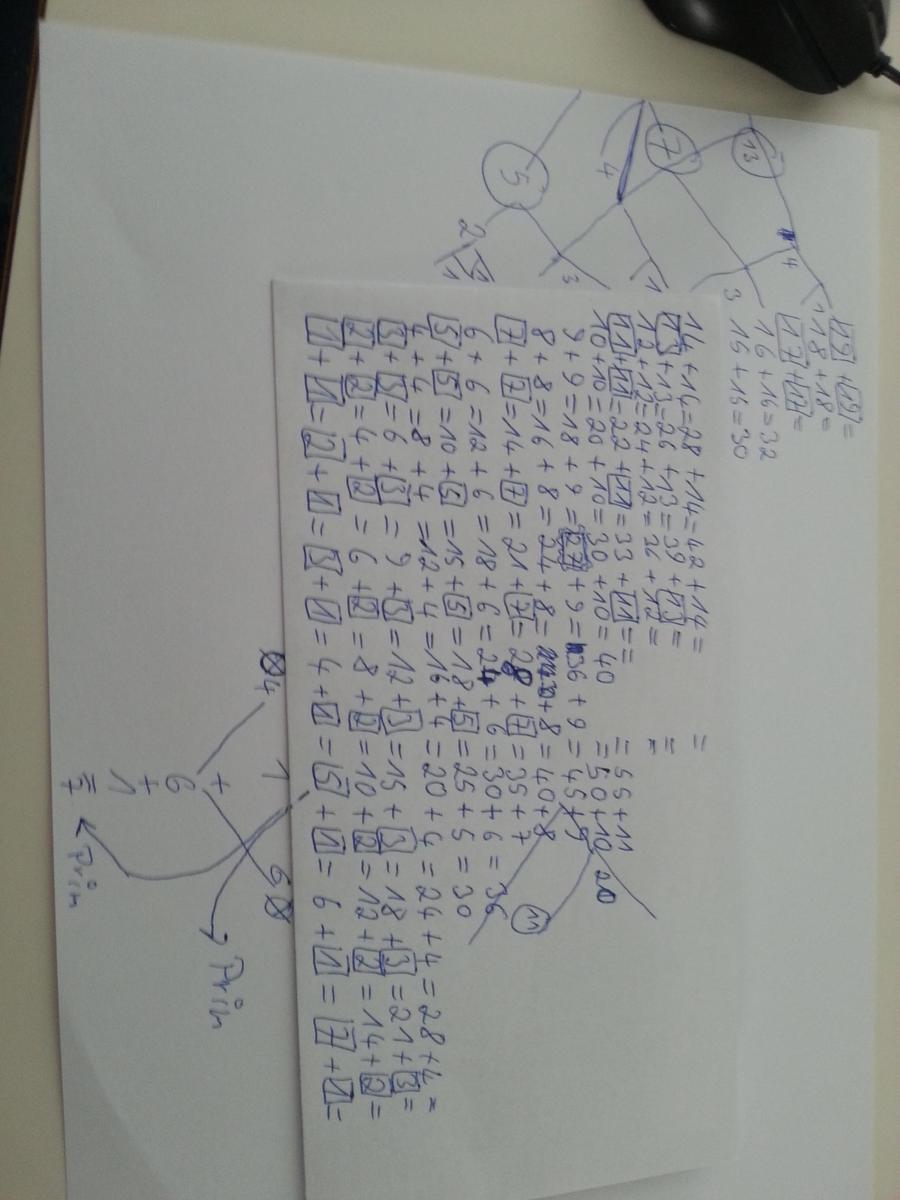 19 + 19 =
18 + 18 =
17 + 17 =
16 + 16 = 32
15 + 15 = 30
13
4
1
7
3
4
1
5
3
2
1
14 + 14 = 28 + 14 = 42 + 14 = =
13 + 13 = 26 + 13 = 39 + 13 = =
12 + 12 = 24 + 12 = 26 + 12 = =
11 + 11 = 22 + 11 = 33 + 11 = = 55 + 11
10 + 10 = 20 + 10 = 30 + 10 = 40 = 50 + 10
9 + 9 = 18 + 9 = 27 + 9 = 36 + 9 = 45 + 9
8 + 8 = 16 + 8 = 24 + 8 = + 8 = 40 + 8
7 + 7 = 14 + 7 = 21 + 7 = 28 + 7 = 35 + 7
6 + 6 = 12 + 6 = 18 + 6 = 24 + 6 = 30 + 6 = 36
5 + 5 = 10 + 5 = 15 + 5 = 18 + 5 = 25 + 5 = 30
4 + 4 = 8 + 4 = 12 + 4 = 16 + 4 = 20 + 4 = 24 + 4 = 28 + 4 =
3 + 3 = 6 + 3 = 9 + 3 = 12 + 3 = 15 + 3 = 18 + 3 = 21 + 3 =
2 + 2 = 4 + 2 = 6 + 2 = 8 + 2 = 10 + 2 = 12 + 2 = 14 + 2 =
1 + 1 = 2 + 1 = 3 + 1 = 4 + 1 = 5 + 1 = 6 + 1 = 7 + 1 =
20
11
1
4 6
+
6
+
1
=
7
Prim
Prim